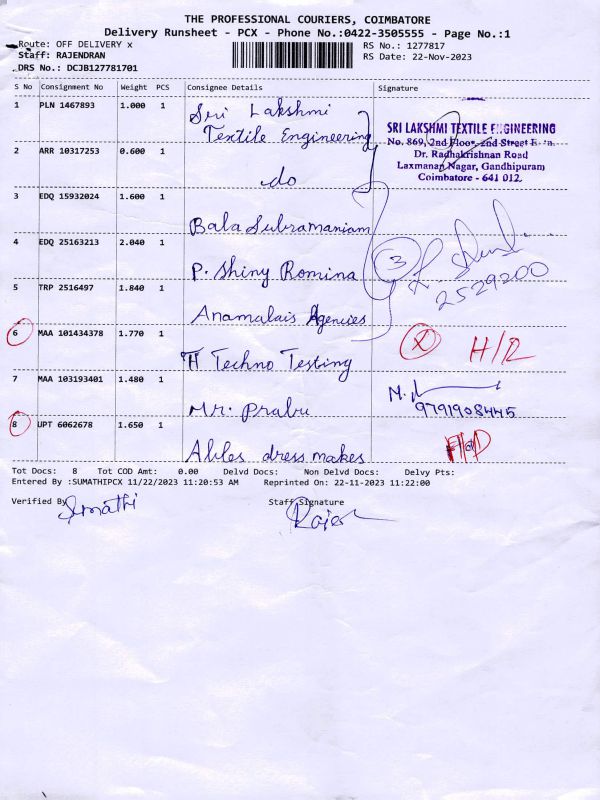 THE PROFESSIONAL COURIERS, COIMBATORE
Delivery Runsheet - PCX - Phone No.:0422-3505555 - Page No.:1
Route: OFF DELIVERY x RS No.: 1277817
Staff: RAJENDRAN RS Date: 22-Nov-2023
DRS No.: DCJB127781701
S No Consignment No Weight PCS Consignee Details Signature
1 PLN 1467893 1.000 1 Sri Lakshmi
Textile Engineering
SRI LAKSHMI TEXTILE ENGINEERING
No. 869, 2nd Floor, 2nd Street
Dr. Radhakrishnan Road
Laxmanan Nagar, Gandhipuram
Coimbatore - 641 012.
2 ARR 10317253 0.600 1 do
3 EDQ 15932024 1.600 1 Bala Subramaniam
4 EDQ 25163213 2.040 1 P. Shiny Romina 3
2529200
5 TRP 2516497 1.840 1 Anamalais Agencies
6 MAA 101434378 1.770 1 H Techno Testing X H/R
7 MAA 103193401 1.480 1 Mr. Prabu M.
9791908445
8 UPT 6062678 1.650 1 Ables dress makes
Tot Docs: 8 Tot COD Amt: 0.00 Delvd Docs: Non Delvd Docs: Delvy Pts:
Entered By :SUMATHIPCX 11/22/2023 11:20:53 AM Reprinted On: 22-11-2023 11:22:00
Verified By Sumathi Staff Signature